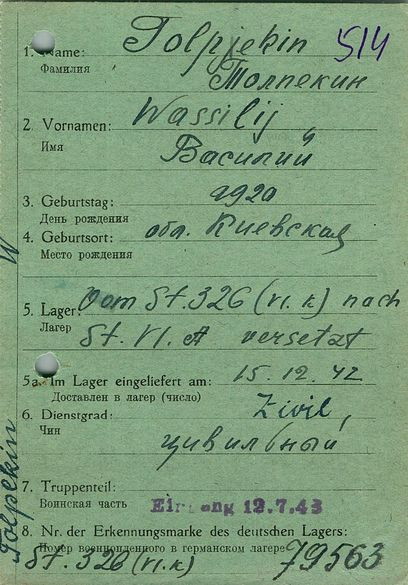 1. Name: Tolpjekin 514
Фамилия Толпекин
2. Vornamen: Wassilij
Имя Василий
3. Geburtstag: 1920
День рождения
4. Geburtsort: обл. Киевская
Место рождения
5. Lager: Vom St. 326 (VI. K) nach
Лагер St. VI. A versetzt
5a. Im Lager eingeliefert am: 15. 12. 42
Доставлен в лагер (число)
6. Dienstgrad: Zivil,
Чин цивильный
7. Truppenteil:
Воинская часть Eingang 12.7.43
8. Nr. der Erkennungsmarke des deutschen Lagers:
Номер военнопленного в германском лагере:
St. 326 (VI. K) 79563
Tolpekin W